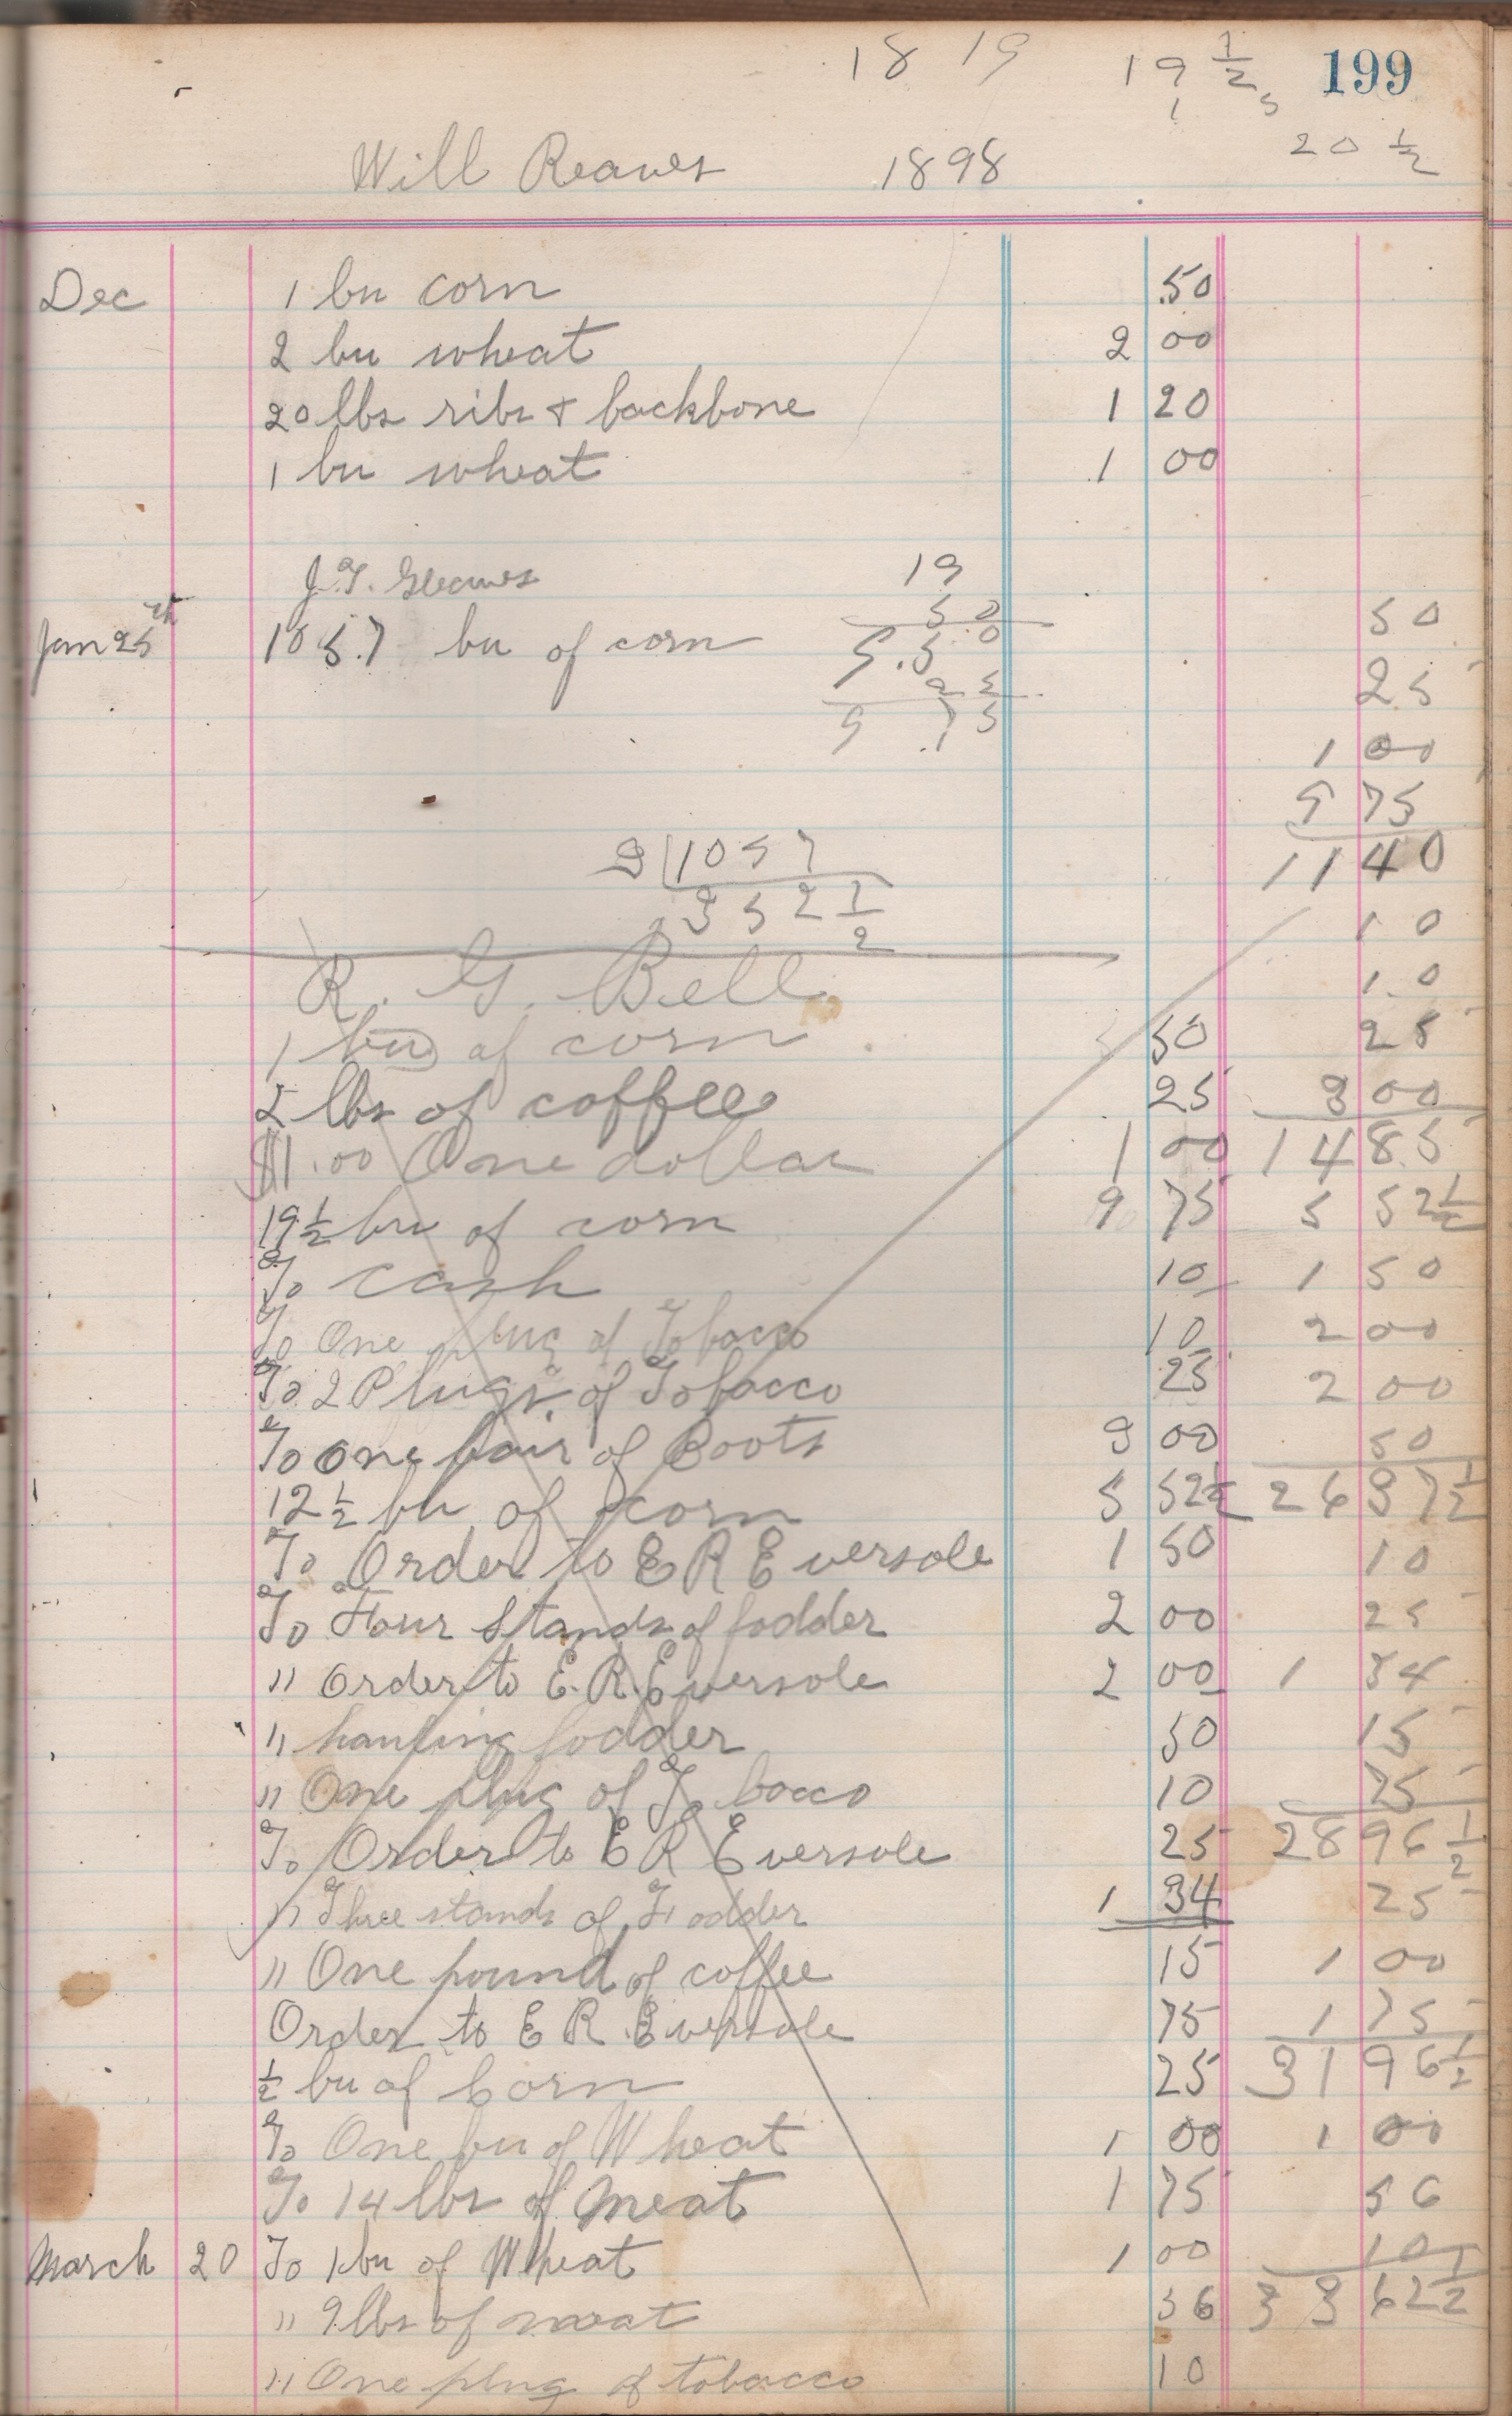 18 19 19 1/2 199
1 5
20 1/2
Will Reaves 1898
Dec 1 bu corn .50
2 bu wheat 2 00
20 lbs ribs + backbone 1 20
1 bu wheat 1 00
J.T. Gleaves 19
50 50
Jan 25th 105.7 bu of corn 9.50
25 25
9 75
1 00
9 75
3|1057 11 40
352 1/2 10
R. G. Bell 10
1 bu of corn 50 25
2 lbs of coffee 25 3 00
$1.00 One dollar 1 00 14 85
19 1/2 bu of corn 9 75 5 52 1/2
To cash 10 1 50
To One plug of Tobacco 10 2 00
To 2 Plugs of Tobacco 25 2 00
To one pair of Boots 3 00 50
12 1/2 bu of corn 5 52 1/2 26 37 1/2
To Order to E R Eversole 1 50 10
To Four Stands of fodder 2 00 25
" Order to E. R. Eversole 2 00 1 34
" hauling fodder 50 15
" One plug of Tobacco 10 75
To Order to E R Eversole 25 28 96 1/2
" Three stands of Fodder 1 34 25
" One pound of coffee 15 1 00
Order to E R Eversole 75 1 75
1/2 bu of Corn 25 31 96 1/2
To One bu of Wheat 1 00 1 00
To 14 lbs of Meat 1 75 56
March 20 To 1 bu of Wheat 1 00 10
" 9 lbs of meat 56 33 62 1/2
" One plug of tobacco 10